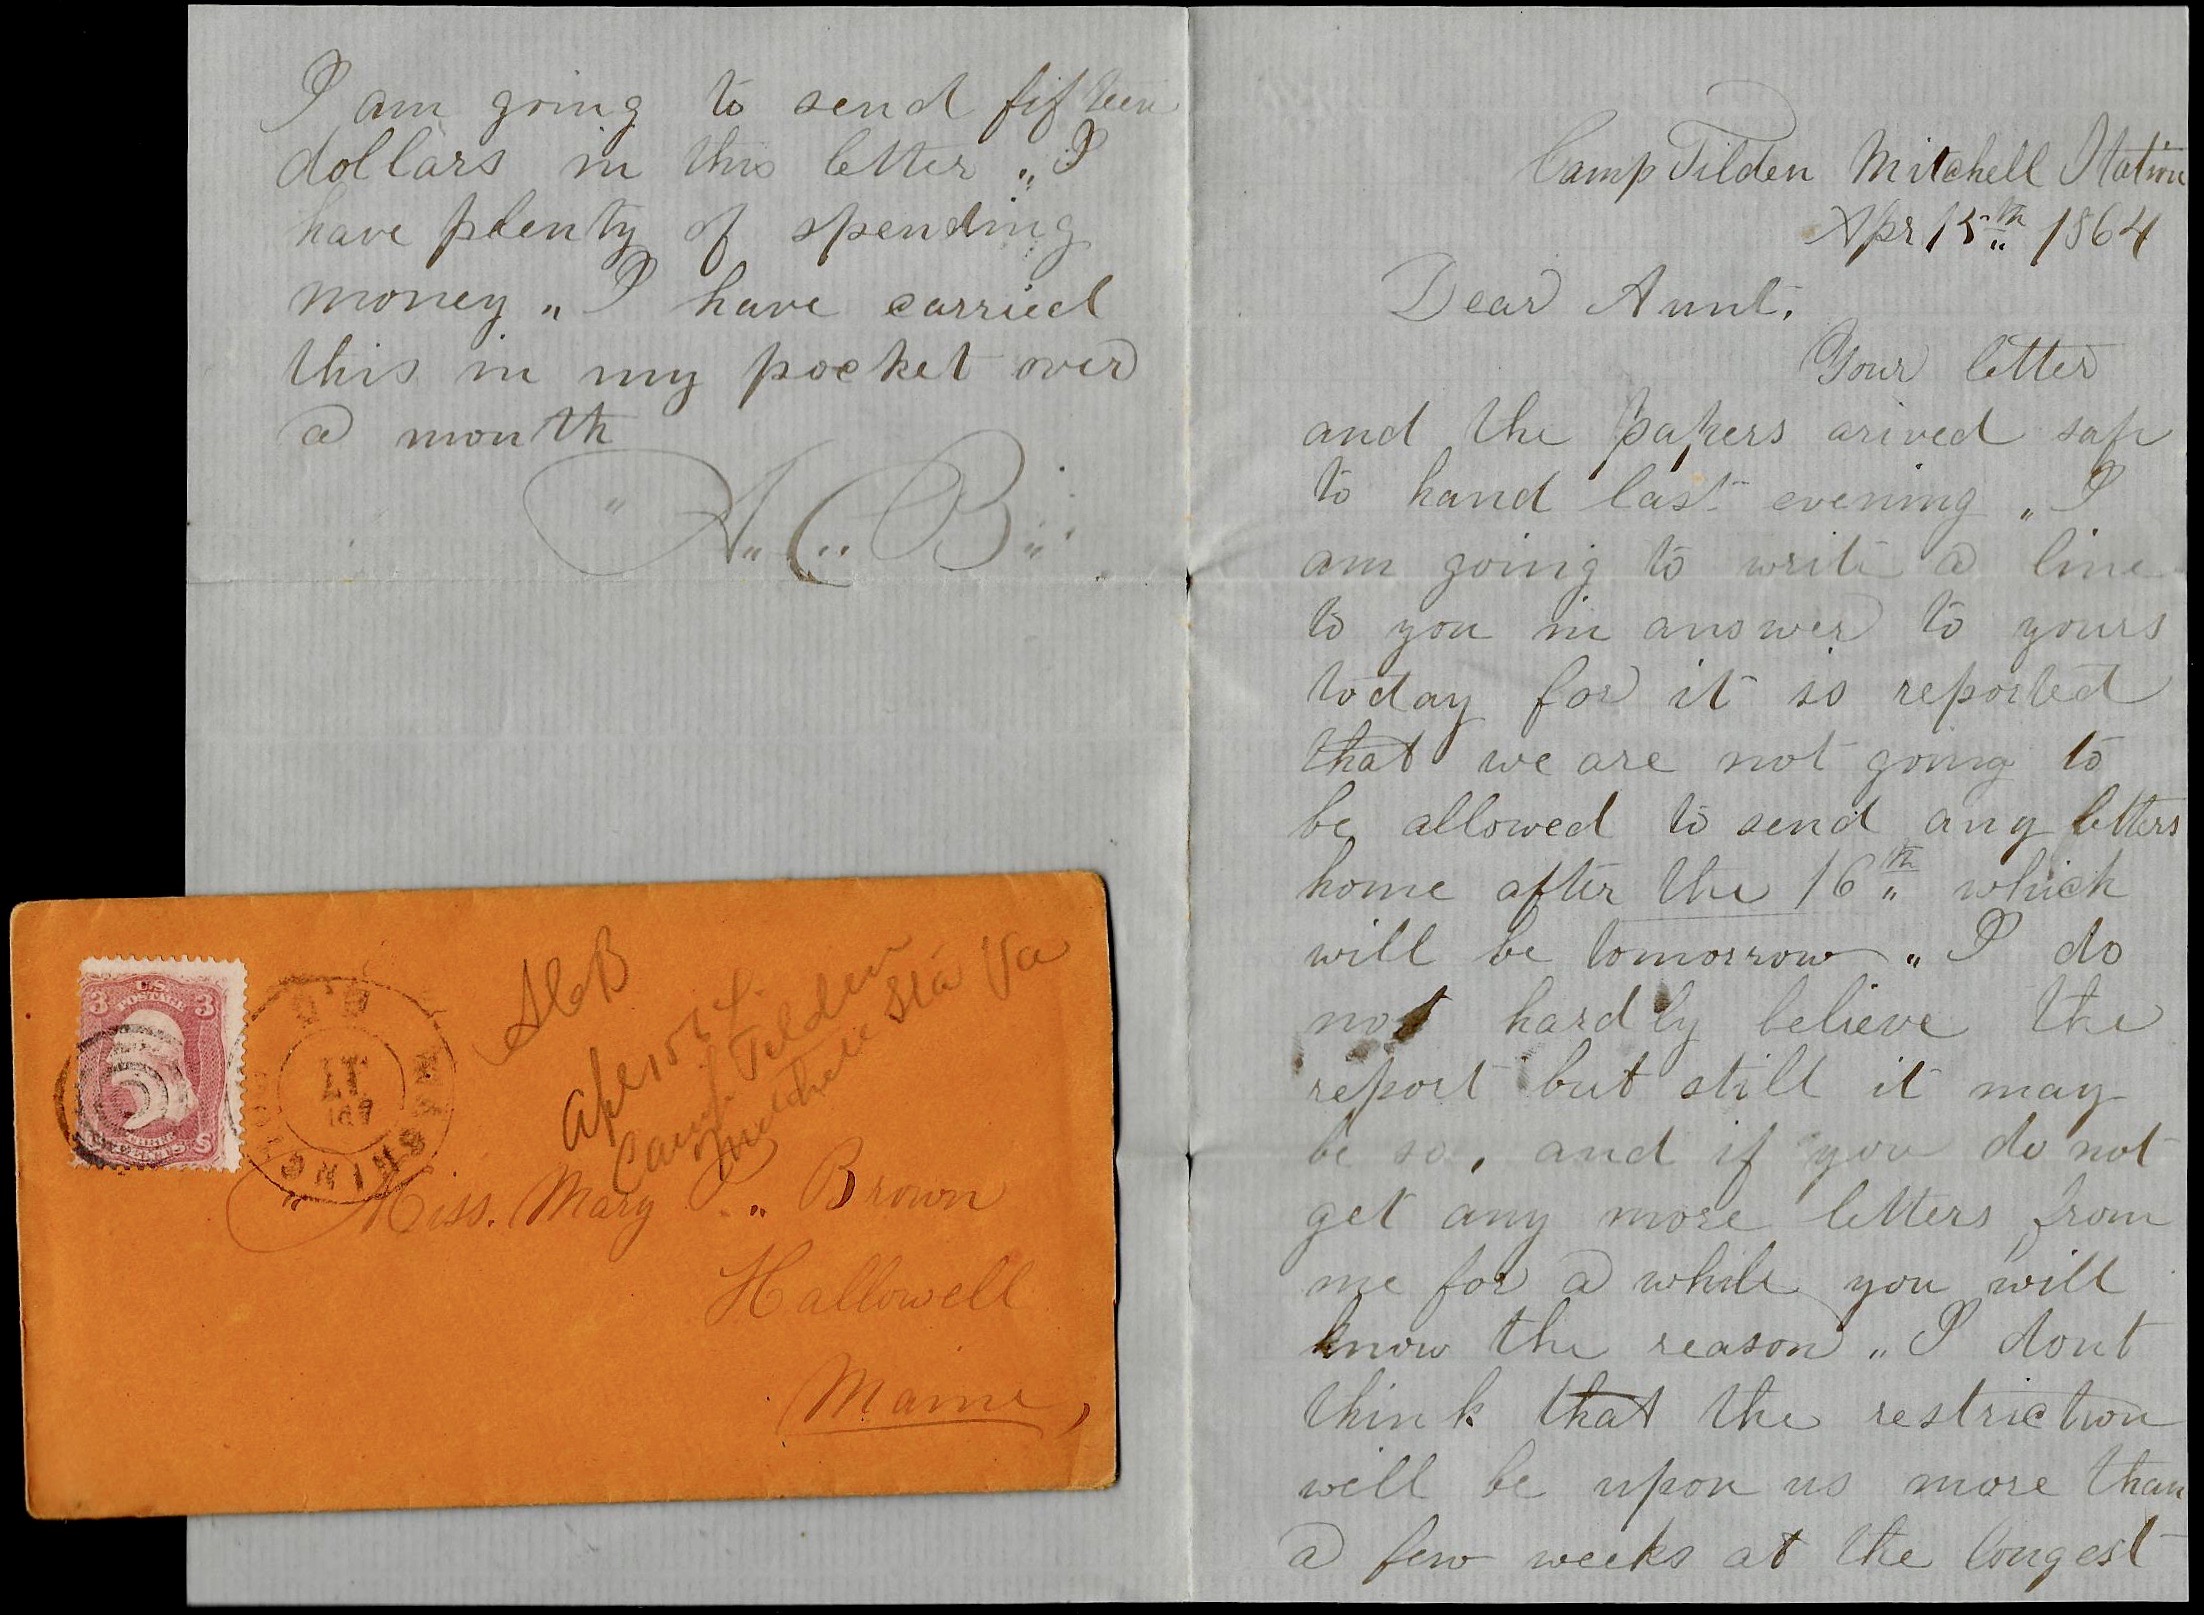 I am going to send fifteen
dollars in this letter „ I
have plenty of spending
money „ I have carried
this in my pocket over
a month
" A„ C„ B„
Camp Tilden Mitchell Station
Apr 15th 1864
Dear Aunt.
Your letter
and the papers arived safe
to hand last evening „ I
am going to write a line
to you in answer to yours
today for it is reported
that we are not going to
be allowed to send any letters
home after the 16th „ which
will be tomorrow „ I do
not hardly believe the
report but still it may
be so, and if you do not
get any more letters from
me for a while you will
know the reason „ I dont
think that the restriction
will be upon us more than
a few weeks at the longest
U.S. POSTAGE
3 3
THREE CENTS
WASHING
APR
17
ACB
Apr 15
Camp Tilden
Mitchell Sta Va
Miss. Mary P„ Brown
Hallowell
Maine,